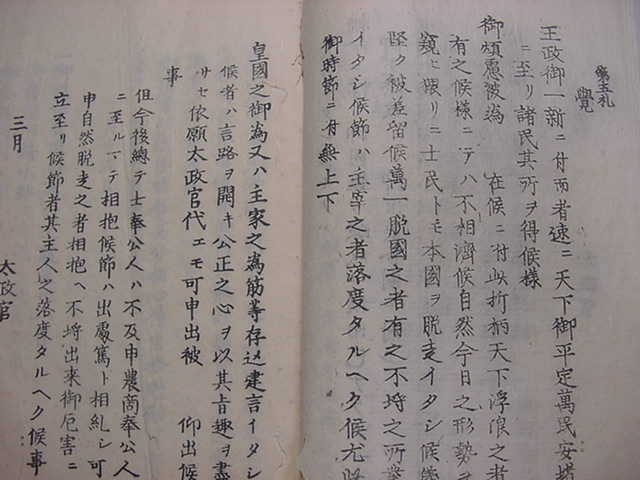 第五札
覺
王政御一新ニ付而者速ニ天下御平定萬民安堵
ニ至リ諸民其所ヲ得候様
御煩慮被為 在候ニ付此折柄天下浮浪之者
有之候様ニテハ不相濟候自然今日之形勢ヲ
窺ヒ猥リニ士民トモ本國ヲ脱走イタシ候儀
堅ク被差留候萬一脱國之者有之不埒之所業
イタシ候節ハ主宰之者落度タルヘク候尤
御時節ニ付無上下
皇國之御為又ハ主家之為筋等存込建言イタシ
候者ハ言路ヲ開キ公正之心ヲ以其旨趣ヲ盡
サセ依願太政官代エモ可申出被 仰出候
事
但今後總テ士奉公人ハ不及申農商奉公人
ニ至ルマテ相抱候節ハ出處篤ト相糺シ可
申自然脱走之者相抱ヘ不埒出来御厄害ニ
立至リ候節者其主人之落度タルヘク候事
三月
太政官